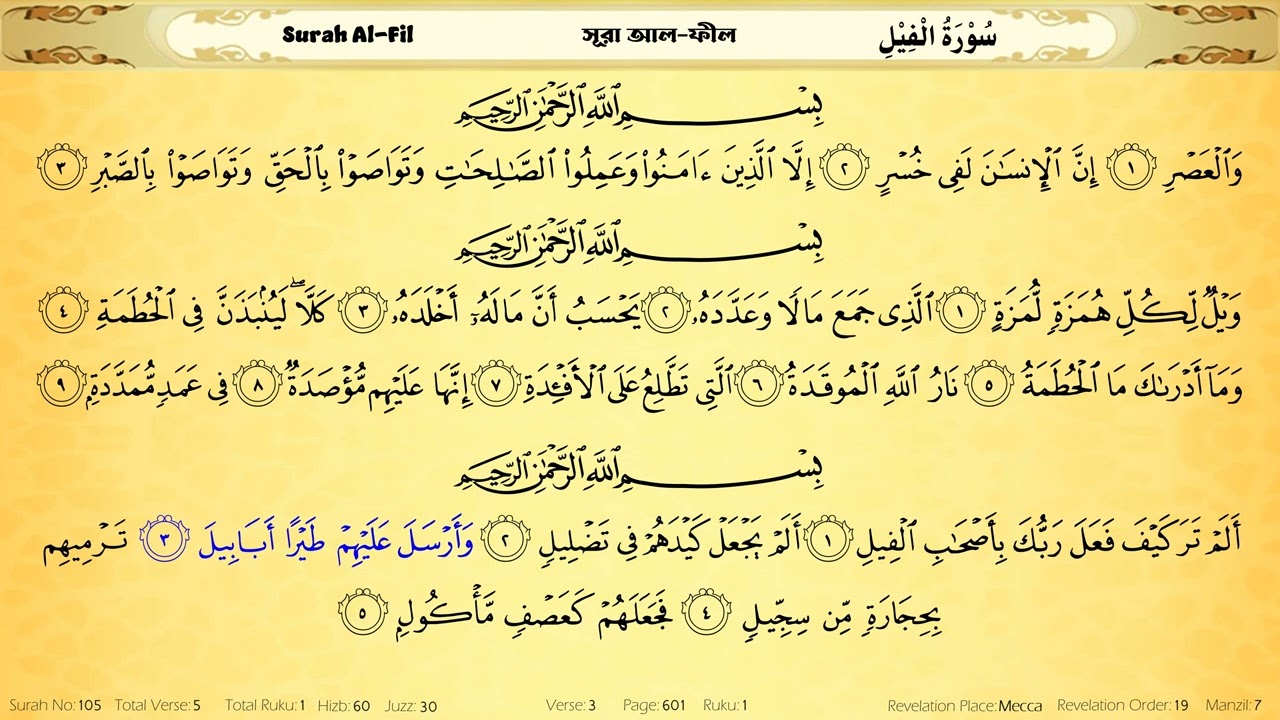 Surah Al-Fil সূরা আল-ফীল سُوْرَةُ الْفِيْلِ
بِسْمِ ٱللَّهِ ٱلرَّحْمَٰنِ ٱلرَّحِيمِ
وَٱلْعَصْرِ ١ إِنَّ ٱلْإِنسَٰنَ لَفِى خُسْرٍ ٢ إِلَّا ٱلَّذِينَ ءَامَنُوا۟ وَعَمِلُوا۟ ٱلصَّٰلِحَٰتِ وَتَوَاصَوْا۟ بِٱلْحَقِّ وَتَوَاصَوْا۟ بِٱلصَّبْرِ ٣
بِسْمِ ٱللَّهِ ٱلرَّحْمَٰنِ ٱلرَّحِيمِ
وَيْلٌ لِّكُلِّ هُمَزَةٍ لُّمَزَةٍ ١ ٱلَّذِى جَمَعَ مَالًا وَعَدَّدَهُۥ ٢ يَحْسَبُ أَنَّ مَالَهُۥٓ أَخْلَدَهُۥ ٣ كَلَّا ۖ لَيُنۢبَذَنَّ فِى ٱلْحُطَمَةِ ٤
وَمَآ أَدْرَىٰكَ مَا ٱلْحُطَمَةُ ٥ نَارُ ٱللَّهِ ٱلْمُوقَدَةُ ٦ ٱلَّتِى تَطَّلِعُ عَلَى ٱلْأَفْـِٔدَةِ ٧ إِنَّهَا عَلَيْهِم مُّؤْصَدَةٌ ٨ فِى عَمَدٍ مُّمَدَّدَةٍۭ ٩
بِسْمِ ٱللَّهِ ٱلرَّحْمَٰنِ ٱلرَّحِيمِ
أَلَمْ تَرَ كَيْفَ فَعَلَ رَبُّكَ بِأَصْحَٰبِ ٱلْفِيلِ ١ أَلَمْ يَجْعَلْ كَيْدَهُمْ فِى تَضْلِيلٍ ٢ وَأَرْسَلَ عَلَيْهِمْ طَيْرًا أَبَابِيلَ ٣ تَرْمِيهِم
بِحِجَارَةٍ مِّن سِجِّيلٍ ٤ فَجَعَلَهُمْ كَعَصْفٍ مَّأْكُولٍۭ ٥
Surah No: 105 Total Verse: 5 Total Ruku: 1 Hizb: 60 Juzz: 30 Verse: 3 Page: 601 Ruku: 1 Revelation Place: Mecca Revelation Order: 19 Manzil: 7